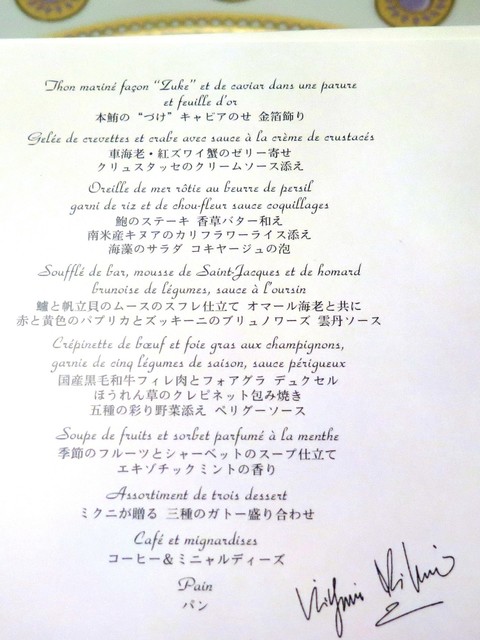 Thon mariné façon "Zuke" et de caviar dans une parure
et feuille d'or
本鮪の"づけ" キャビアのせ 金箔飾り
Gelée de crevettes et crabe avec sauce à la crème de crustacés
車海老・紅ズワイ蟹のゼリー寄せ
クリュスタッセのクリームソース添え
Oreille de mer rôtie au beurre de persil
garni de riz et de chou-fleur sauce coquillages
鮑のステーキ 香草バター和え
南米産キヌアのカリフラワーライス添え
海藻のサラダ コキヤージュの泡
Soufflé de bar, mousse de Saint-Jacques et de homard
brunoise de légumes, sauce à l'oursin
鱸と帆立貝のムースのスフレ仕立て オマール海老と共に
赤と黄色のパプリカとズッキーニのブリュノワーズ 雲丹ソース
Crépinette de bœuf et foie gras aux champignons,
garnie de cinq légumes de saison, sauce périgueux
国産黒毛和牛フィレ肉とフォアグラ デュクセル
ほうれん草のクレピネット包み焼き
五種の彩り野菜添え ペリグーソース
Soupe de fruits et sorbet parfumé à la menthe
季節のフルーツとシャーベットのスープ仕立て
エキゾチックミントの香り
Assortiment de trois dessert
ミクニが贈る 三種のガトー盛り合わせ
Café et mignardises
コーヒー&ミニャルディーズ
Pain
パン